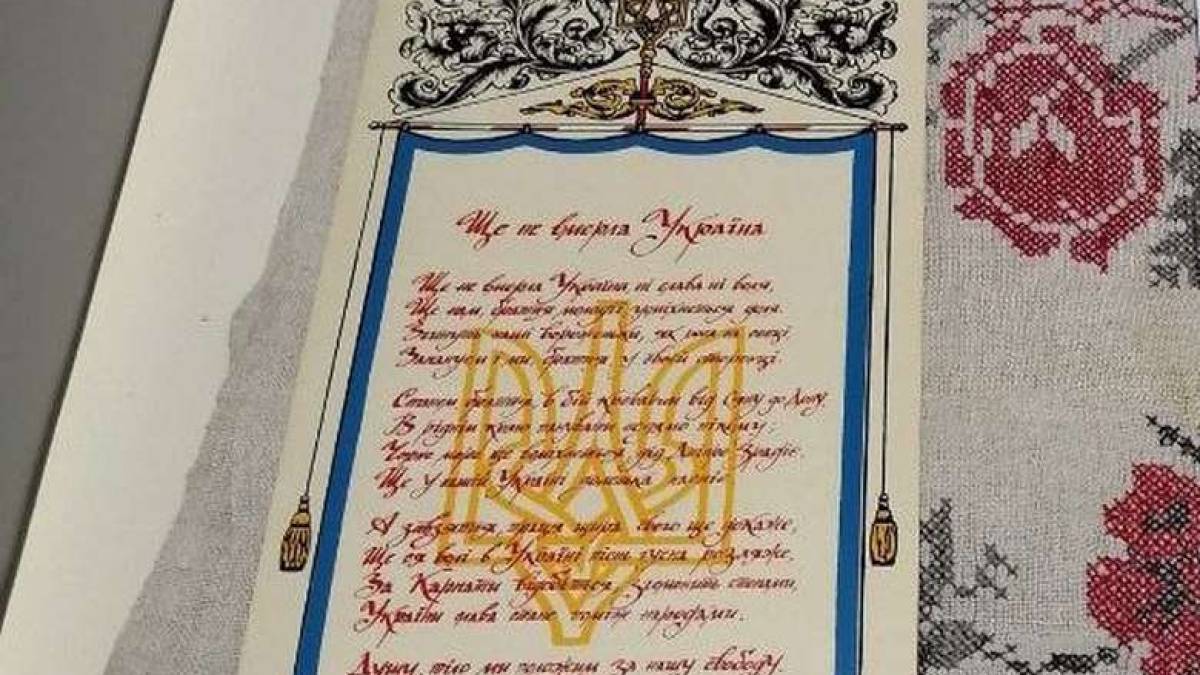 Ще не вмерла Україна
Ще не вмерла Україна ні слава ні воля,
Ще нам браття молодії усміхнеться доля.
Згинуть наші вороженьки, як роса на сонці
Запануєм і ми, браття у своїй сторонці.
Станем браття, в бій кровавий від Сяну до Дону,
В ріднім краю панувати не дамо нікому;
Чорне море ще
Ще у нашій Україні
А завзяття, праця щира свого ще докаже,
Ще ся волі в Україні піснь гучна розляже,
За Карпати відоб'ється, згомонить степами,
України слава стане поміж народами.
Душу, тіло ми положим за нашу свободу